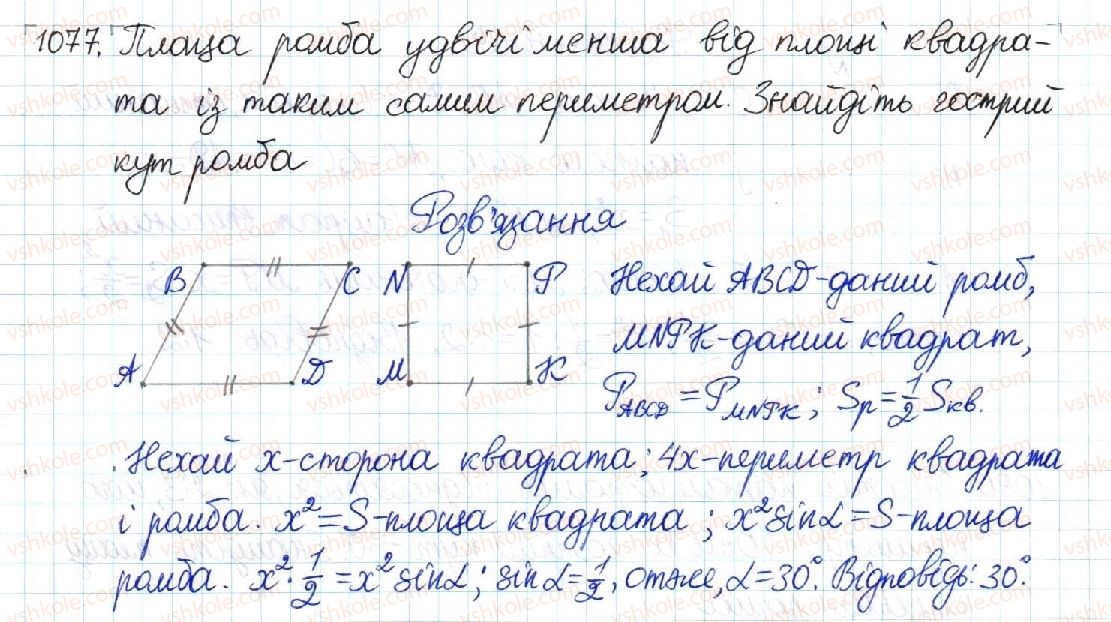 1077. Площа ромба удвічі менша від площі квадра-
та із таким самим периметром. Знайдіть гострий
кут ромба
Розв'язання
B C N P Нехай ABCD-даний ромб,
MNPK-даний квадрат,
A D M K
P_ABCD = P_MNPK; Sp = 1/2 Sкв.
Нехай x-сторона квадрата; 4x-периметр квадрата
і ромба. x² = S-площа квадрата; x² sinα = S-площа
ромба. x² · 1/2 = x² sinα; sinα = 1/2, отже, α = 30°. Відповідь: 30°.